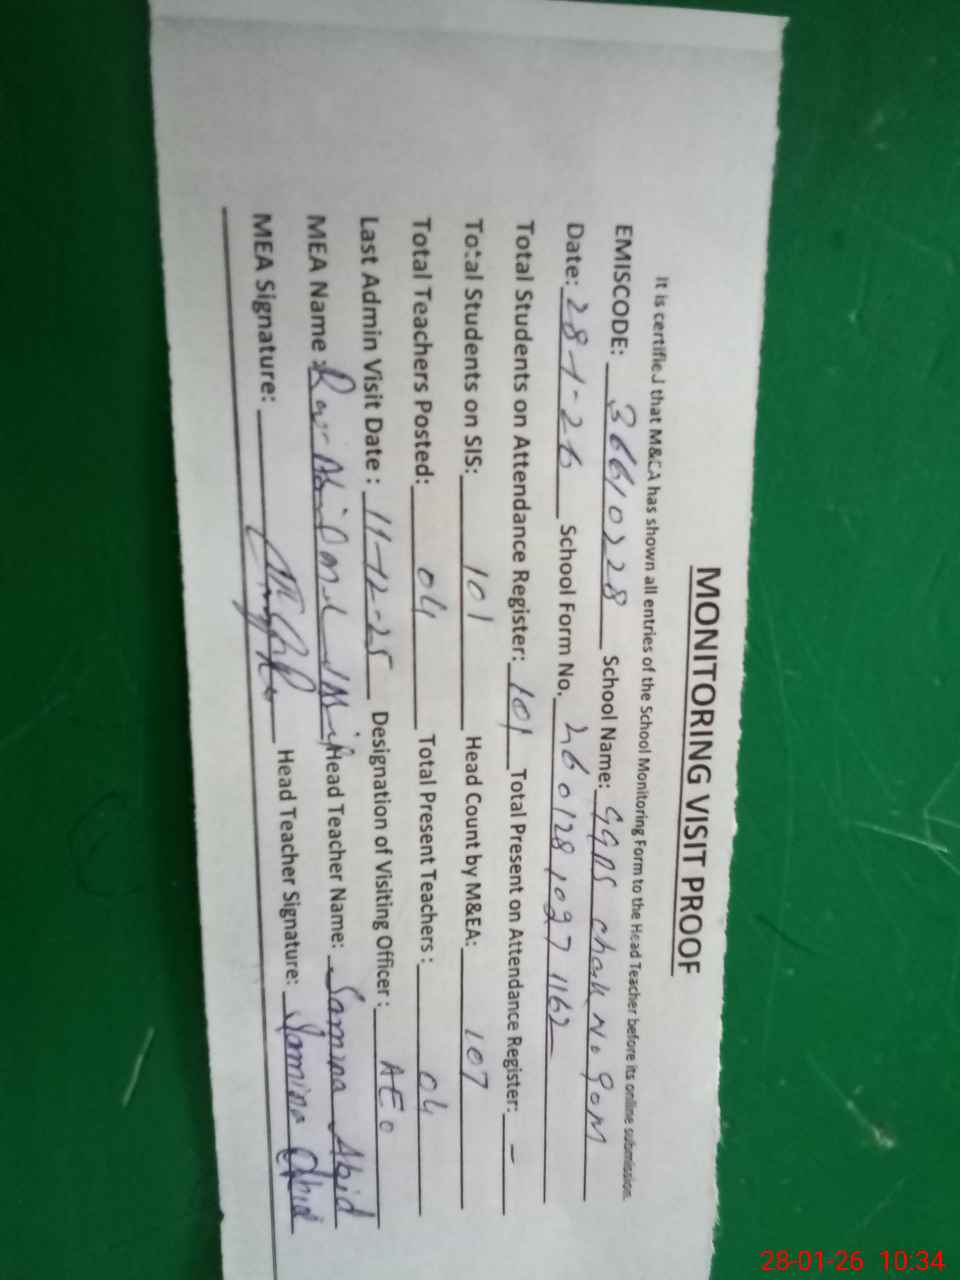 MONITORING VISIT PROOF
It is certified that M&EA has shown all entries of the School Monitoring Form to the Head Teacher before its online submission.
EMISCODE: 36610228 School Name: GGPS Chak No 90M
Date: 28-1-26 School Form No. 260128 1097 1162
Total Students on Attendance Register: 101 Total Present on Attendance Register: -
Total Students on SIS: 101 Head Count by M&EA: 107
Total Teachers Posted: 04 Total Present Teachers: 04
Last Admin Visit Date: 11-12-25 Designation of Visiting Officer: AEO
MEA Name: Head Teacher Name: Samina Abid
MEA Signature: Head Teacher Signature: Samina Abid
28-01-26 10:34